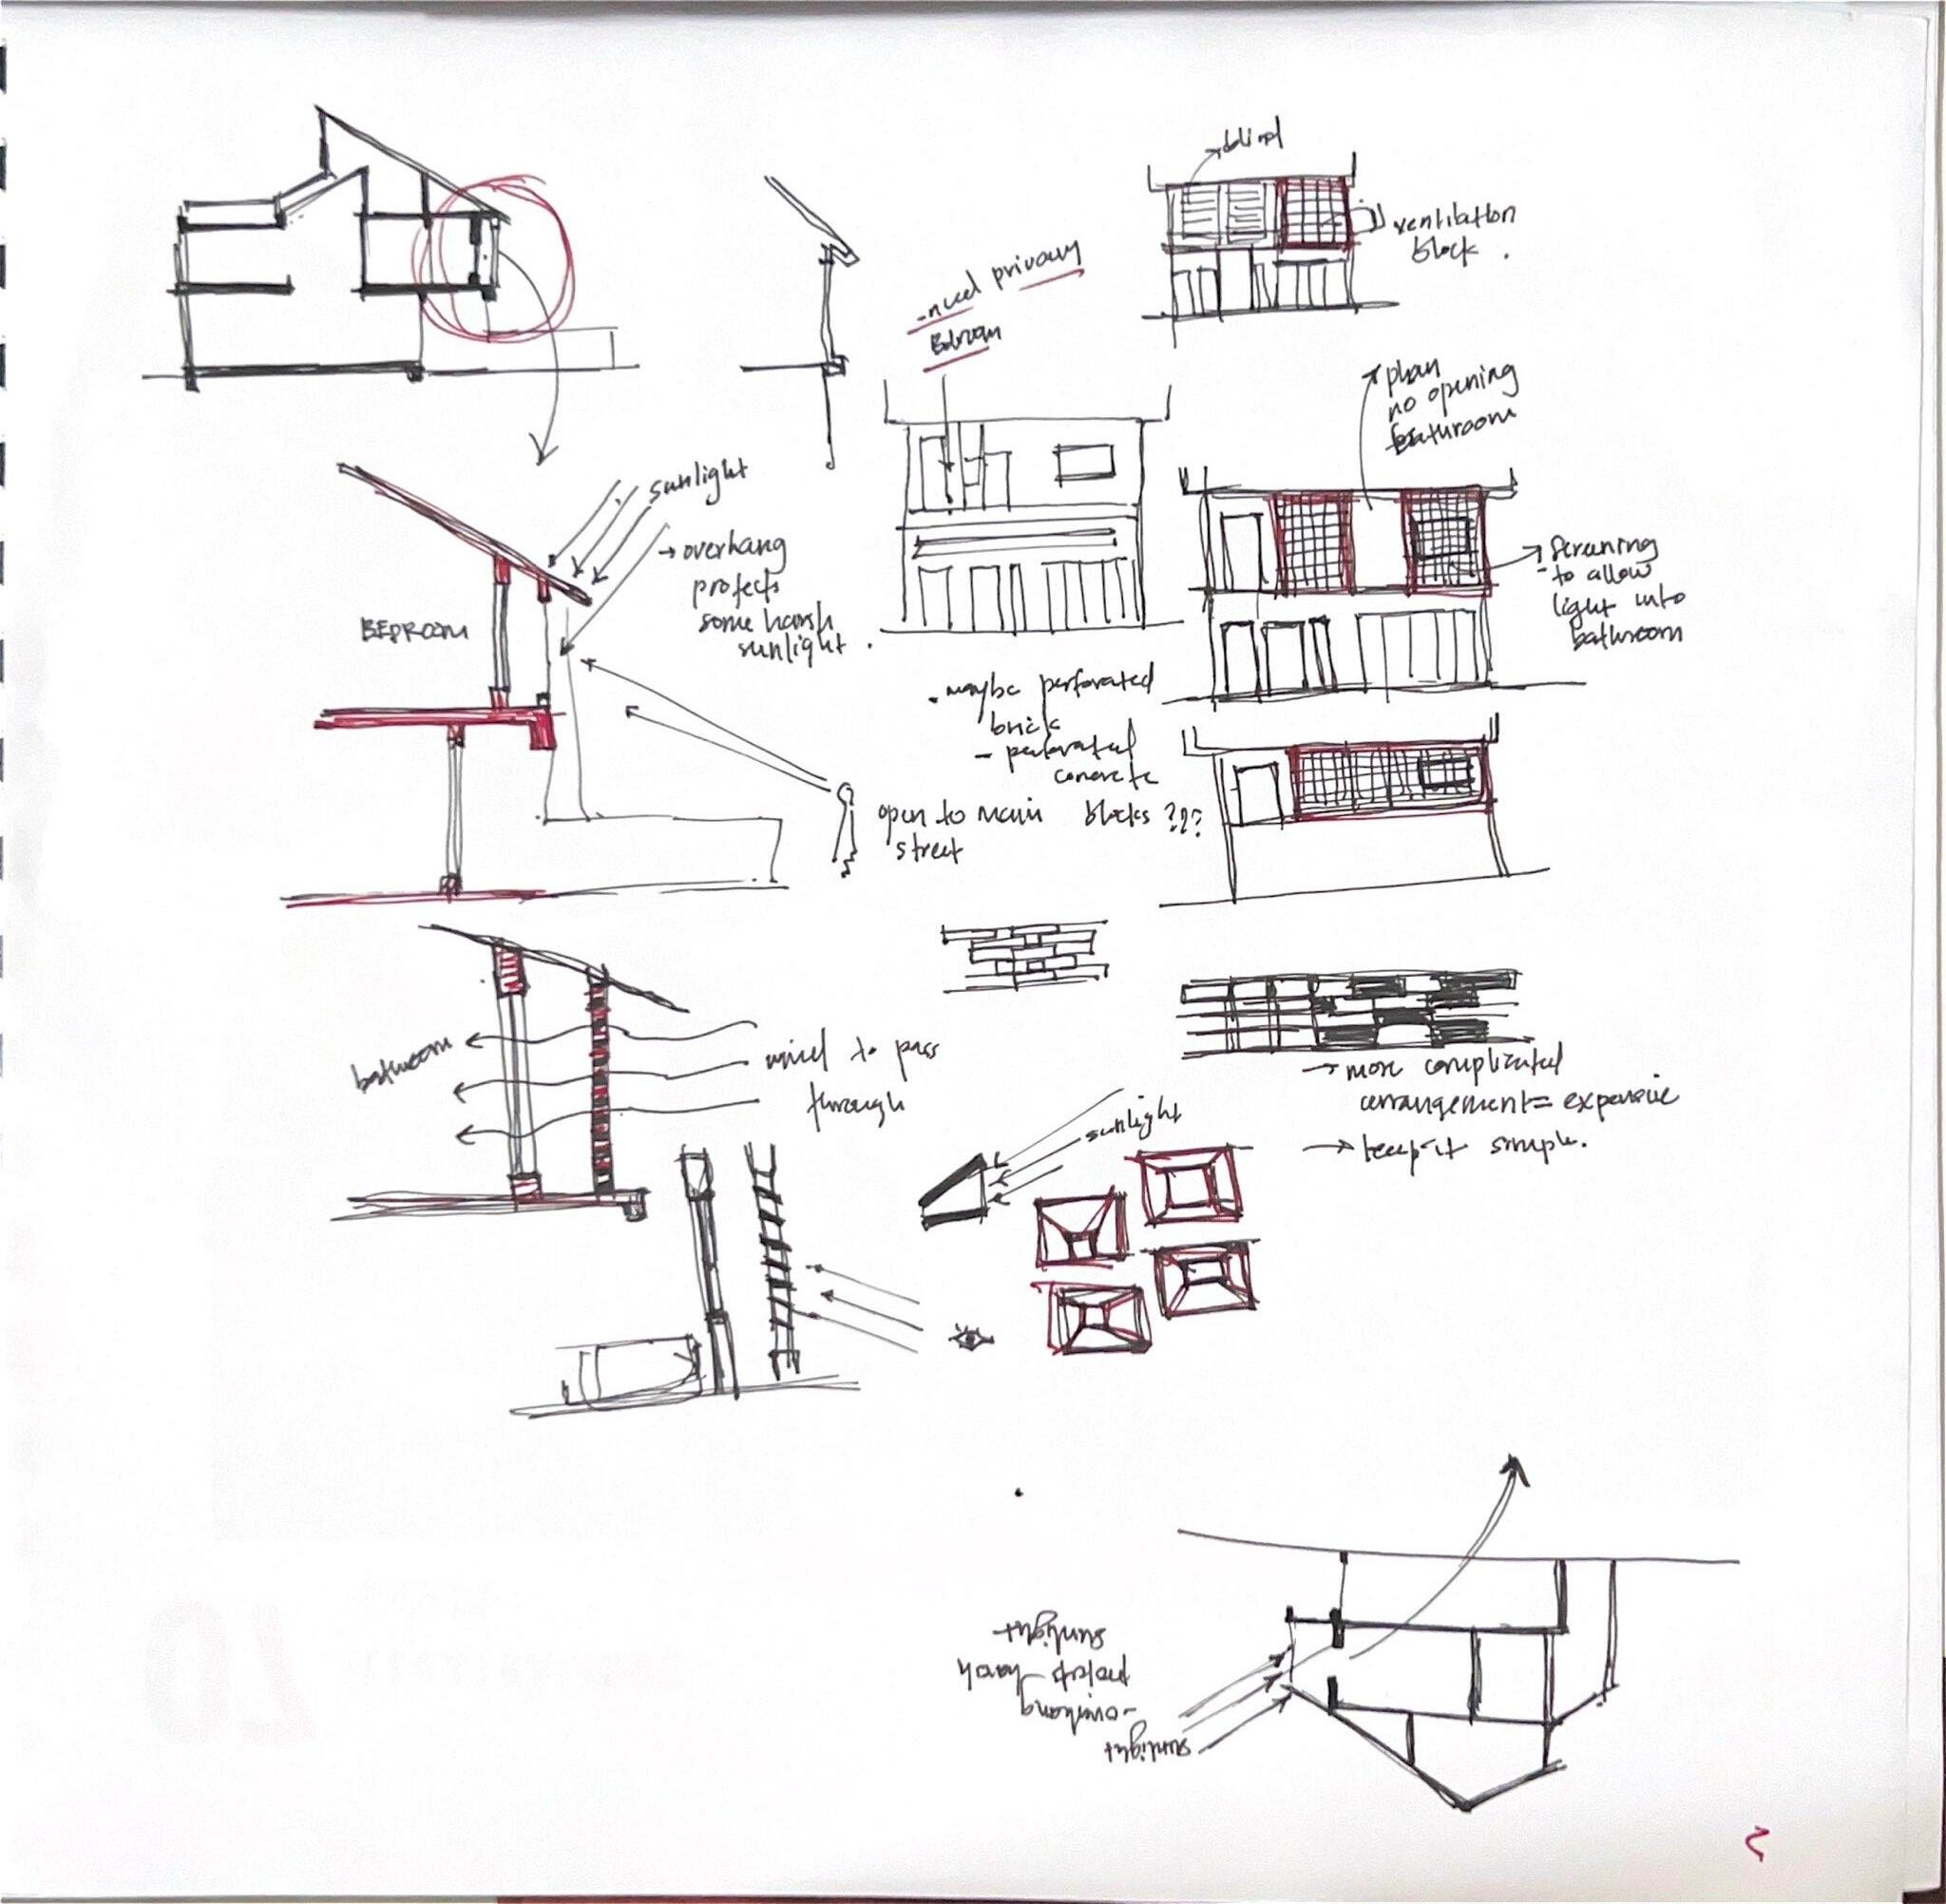 blind
ventilation
block.
- need privacy
Bedroom
plan
no opening
bathroom
sunlight
→ overhang
protects
some harsh
sunlight.
BEDROOM
→ screening
- to allow
light into
bathroom
• maybe perforated
brick
- perforated
concrete
blocks ???
open to main
street
bathroom
wind to pass
through
→ more complicated
arrangement = expensive
→ keep it simple.
sunlight
sunlight
- overhang
protect harsh
sunlight